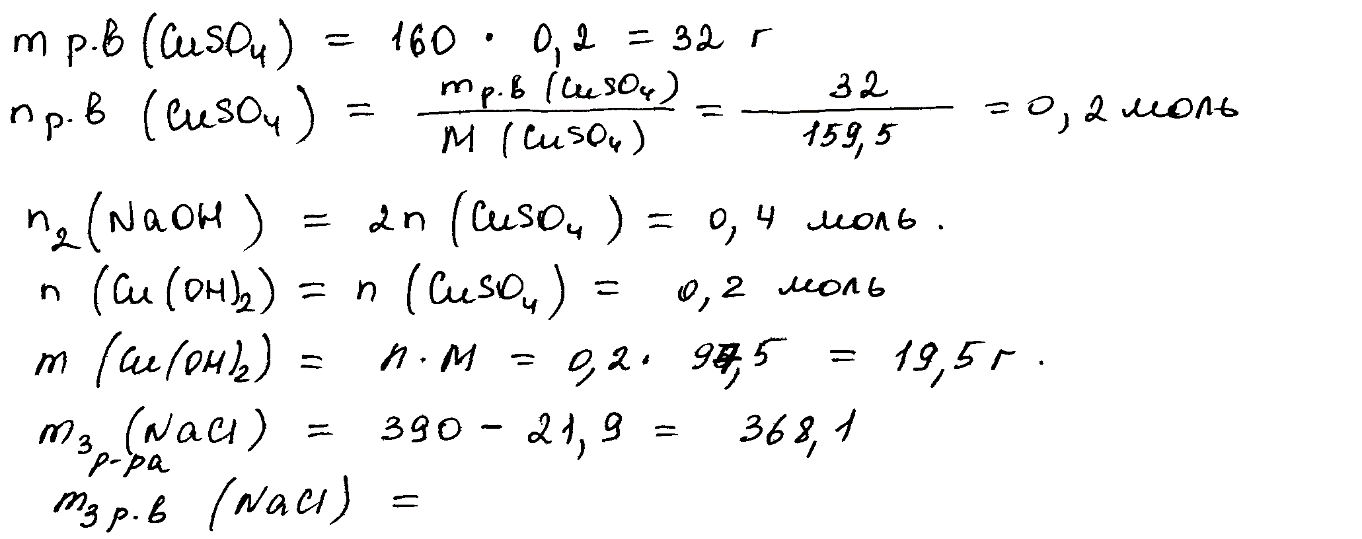 m р.в (CuSO₄) = 160 · 0,2 = 32 г
n р.в (CuSO₄) = m р.в (CuSO₄) / M (CuSO₄) = 32 / 159,5 = 0,2 моль
n₂(NaOH) = 2n (CuSO₄) = 0,4 моль.
n (Cu(OH)₂) = n (CuSO₄) = 0,2 моль
m (Cu(OH)₂) = n · M = 0,2 · 97,5 = 19,5 г.
m₃ р-ра (NaCl) = 390 − 21,9 = 368,1
m₃ р.в (NaCl) =